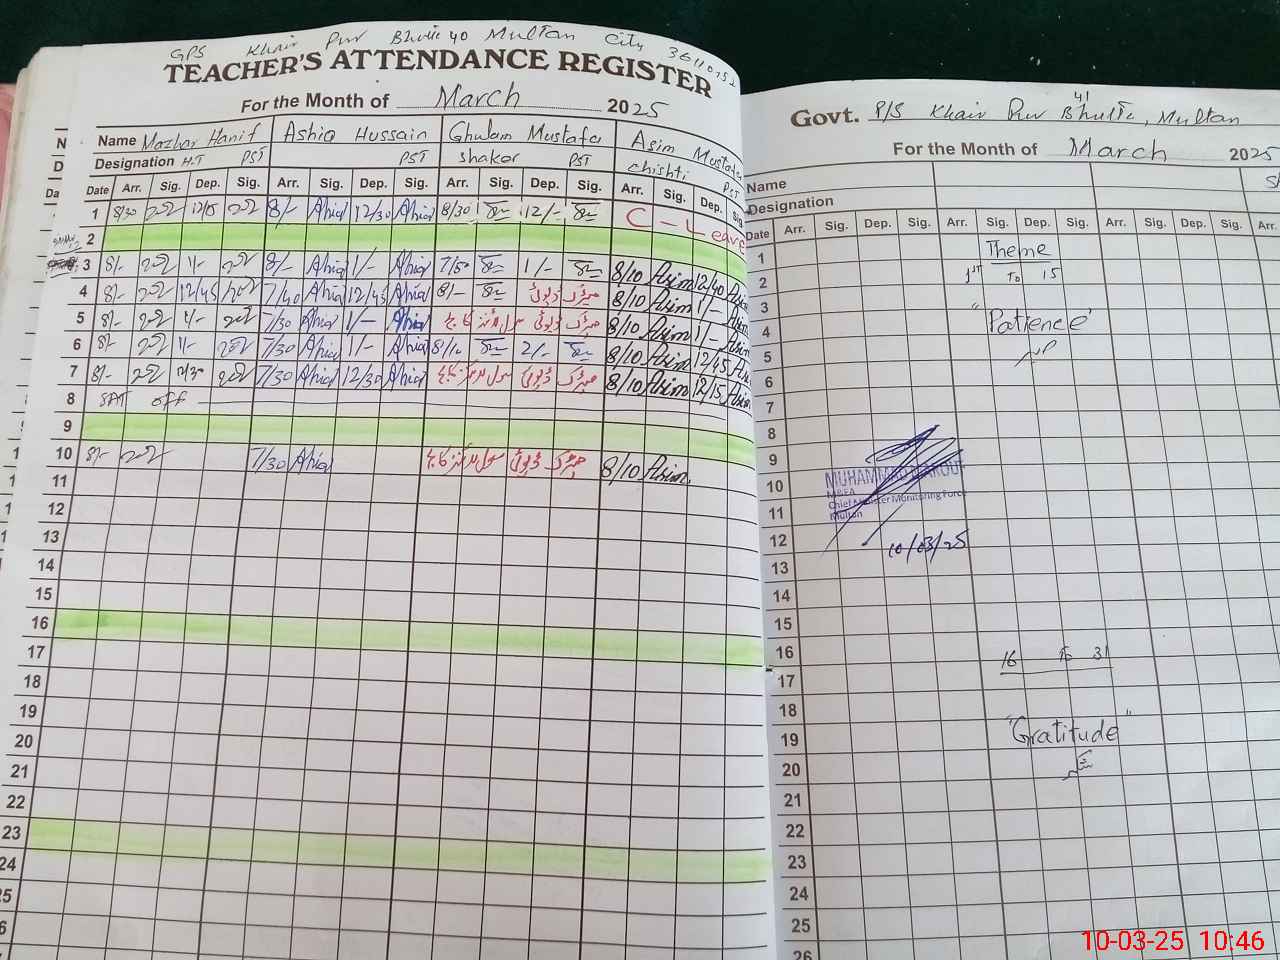 GPS Khair Pur Bhutte 40 Multan City 36110752
TEACHER'S ATTENDANCE REGISTER
For the Month of March 2025
Name Mazhar Hanif Ashiq Hussain Ghulam Mustafa Asim Mustafa
Designation H.T PST PST shakar PST chishti PST
Date Arr. Sig. Dep. Sig. Arr. Sig. Dep. Sig. Arr. Sig. Dep. Sig. Arr. Sig. Dep. Sig.
1 8/30 12/15 8/- 12/30 8/30 12/- C - Leave
2
3 8/- 1/- 8/- 1/- 7/50 1/- 8/10 Asim 12/40 Asim
4 8/- 12/45 7/40 12/45 8/- میٹرک ڈیوٹی 8/10 Asim 1/- Asim
5 8/- 1/- 7/30 1/- میٹرک ڈیوٹی 8/10 Asim 1/- Asim
6 8/- 1/- 7/30 1/- 8/10 2/- 8/10 Asim 12/45 Asim
7 8/- 12/30 7/30 12/30 میٹرک ڈیوٹی 8/10 Asim 12/15 Asim
8 SAT off
9
10 8/- 7/30 میٹرک ڈیوٹی 8/10 Asim
11
12
13
14
15
16
17
18
19
20
21
22
23
24
25
Govt. P/S Khair Pur Bhutte 41, Multan
For the Month of March 2025
Name
Designation
Date Arr. Sig. Dep. Sig. Arr. Sig. Dep. Sig. Arr. Sig. Dep. Sig. Arr.
1 Theme
2 1st To 15
3
4 "Patience"
5
6
7
8
9
10 MUHAMMAD MAROUF
MEA
11 Chief Minister Monitoring Force
Multan
12 10/03/25
13
14
15
16 16 To 31
17
18
19 "Gratitude"
20
21
22
23
24
25
26
10-03-25 10:46